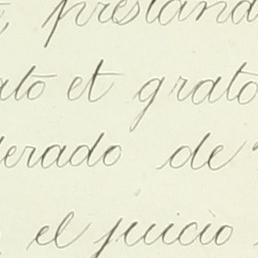 prestand
ato et grato
derado de
el juicio